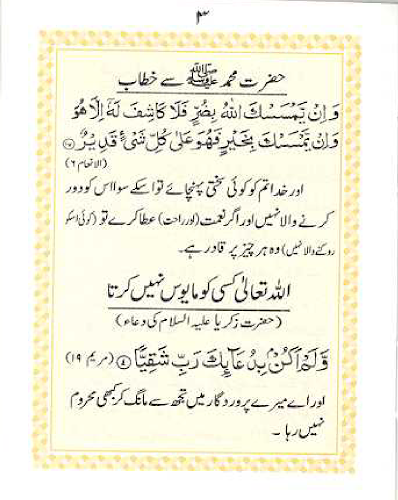 ۳
حضرت محمد ﷺ سے خطاب
وَاِنْ يَّمْسَسْكَ اللّٰهُ بِضُرٍّ فَلَا كَاشِفَ لَهٗٓ اِلَّا هُوَ
وَاِنْ يَّمْسَسْكَ بِخَيْرٍ فَهُوَ عَلٰى كُلِّ شَىْءٍ قَدِيْرٌ ⑰
(الانعام ۶)
اور خدا تم کو کوئی سختی پہنچائے تو اسکے سوا اس کو دور
کرنے والا نہیں اور اگر نعمت (اور راحت) عطا کرے تو (کوئی اسکو
روکنے والا نہیں) وہ ہر چیز پر قادر ہے۔
اللہ تعالیٰ کسی کو مایوس نہیں کرتا
(حضرت زکریا علیہ السلام کی دعاء)
وَّلَمْ اَكُنْۢ بِدُعَآئِكَ رَبِّ شَقِيًّا ④ (مریم ۱۹)
اور اے میرے پروردگار میں تجھ سے مانگ کر کبھی محروم
نہیں رہا ۔